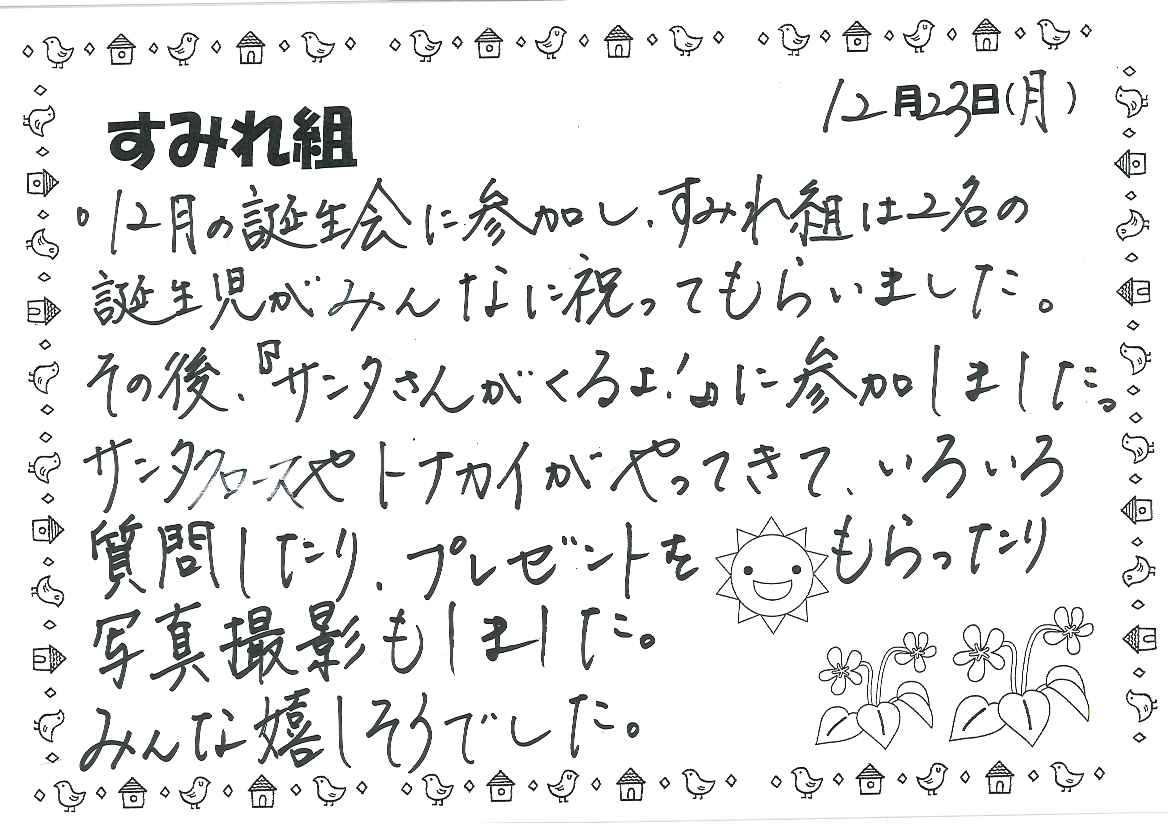 12月23日(月)
すみれ組
。12月の誕生会に参加し、すみれ組は2名の
誕生児がみんなに祝ってもらいました。
その後、『サンタさんがくるよ！』に参加しました。
サンタクロースやトナカイがやってきて、いろいろ
質問したり、プレゼントをもらったり
写真撮影もしました。
みんな嬉しそうでした。